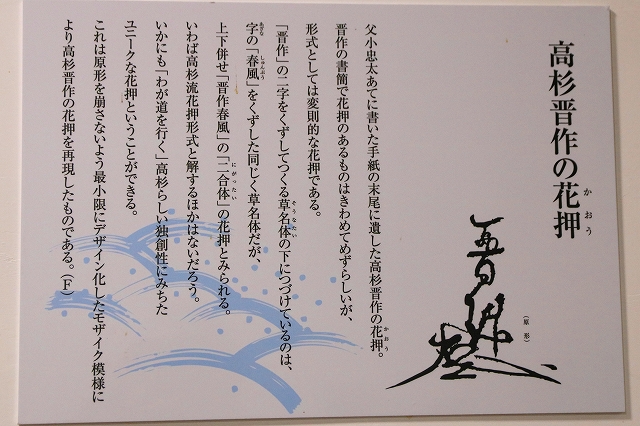 高杉晋作の花押
かおう
（原形）
父小忠太あてに書いた手紙の末尾に遺した高杉晋作の花押。
かおう
晋作の書簡で花押のあるものはきわめてめずらしいが、
形式としては変則的な花押である。
「晋作」の二字をくずしてつくる草名体の下につづけているのは、
そうなたい
字の「春風」をくずした同じく草名体だが、
あざな
しゅんぷう
上下併せ「晋作春風」の「二合体」の花押とみられる。
にがったい
いわば高杉流花押形式と解するほかはないだろう。
いかにも「わが道を行く」高杉らしい独創性にみちた
ユニークな花押ということができる。
これは原形を崩さないよう最小限にデザイン化したモザイク模様に
より高杉晋作の花押を再現したものである。（F）